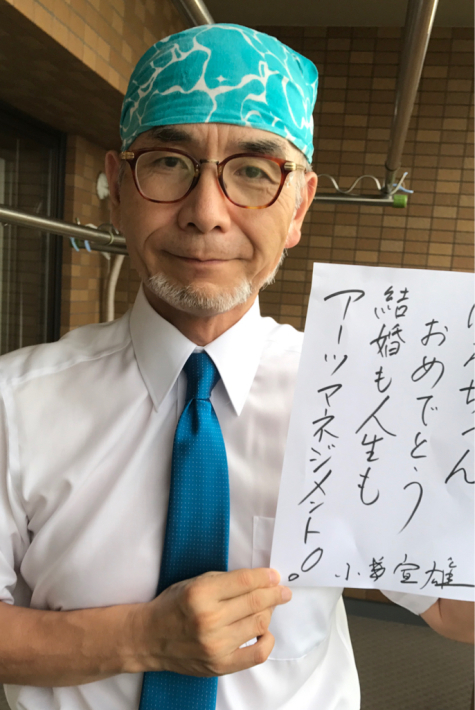 ちゃん
おめでとう
結婚も人生も
アーツマネジメント!
小暮宣雄